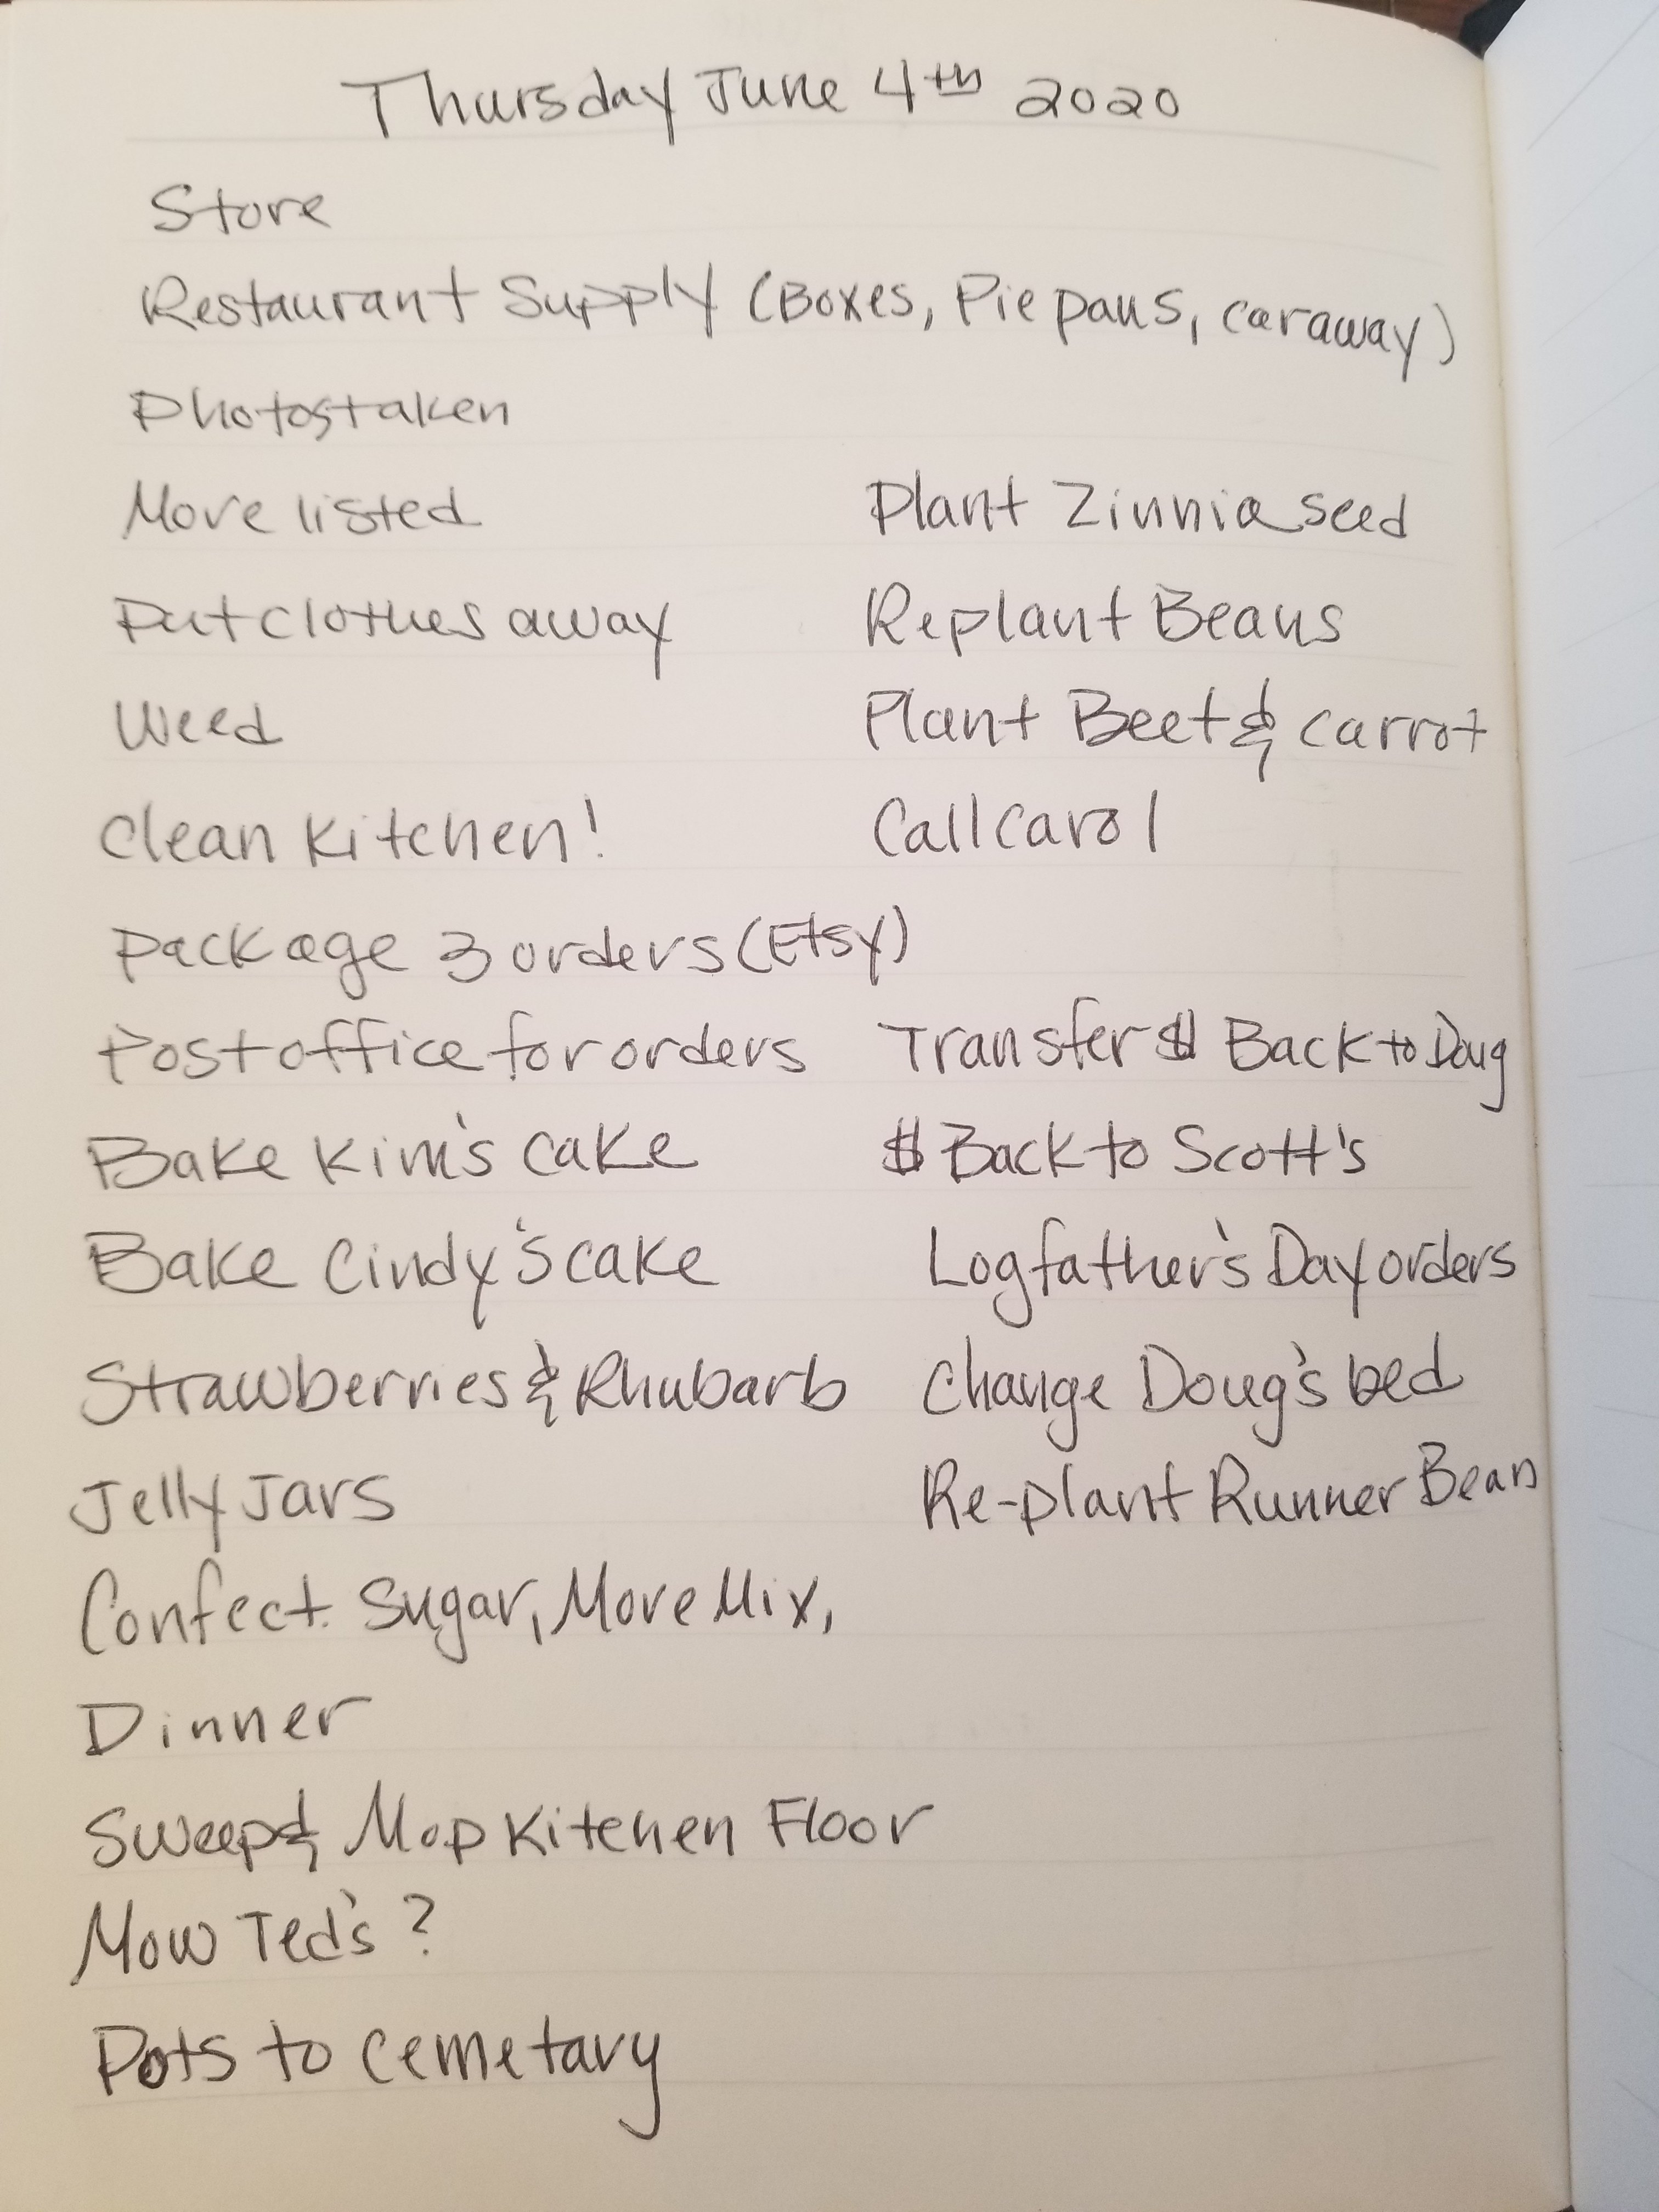 Thursday June 4th 2020
Store
Restaurant Supply (Boxes, Pie pans, caraway)
Photos taken
More listed
Put clothes away
Weed
Clean Kitchen!
Package 3 orders (Etsy)
Post office for orders
Bake Kim's cake
Bake Cindy's cake
Strawberries & Rhubarb
Jelly Jars
Confect. Sugar, More Mix,
Dinner
Sweep & Mop Kitchen Floor
Mow Ted's ?
Pots to Cemetary
Plant Zinnia seed
Replant Beans
Plant Beet & carrot
Call Carol
Transfer $ Back to Doug
$ Back to Scott's
Log father's Day orders
Change Doug's bed
Re-plant Runner Bean